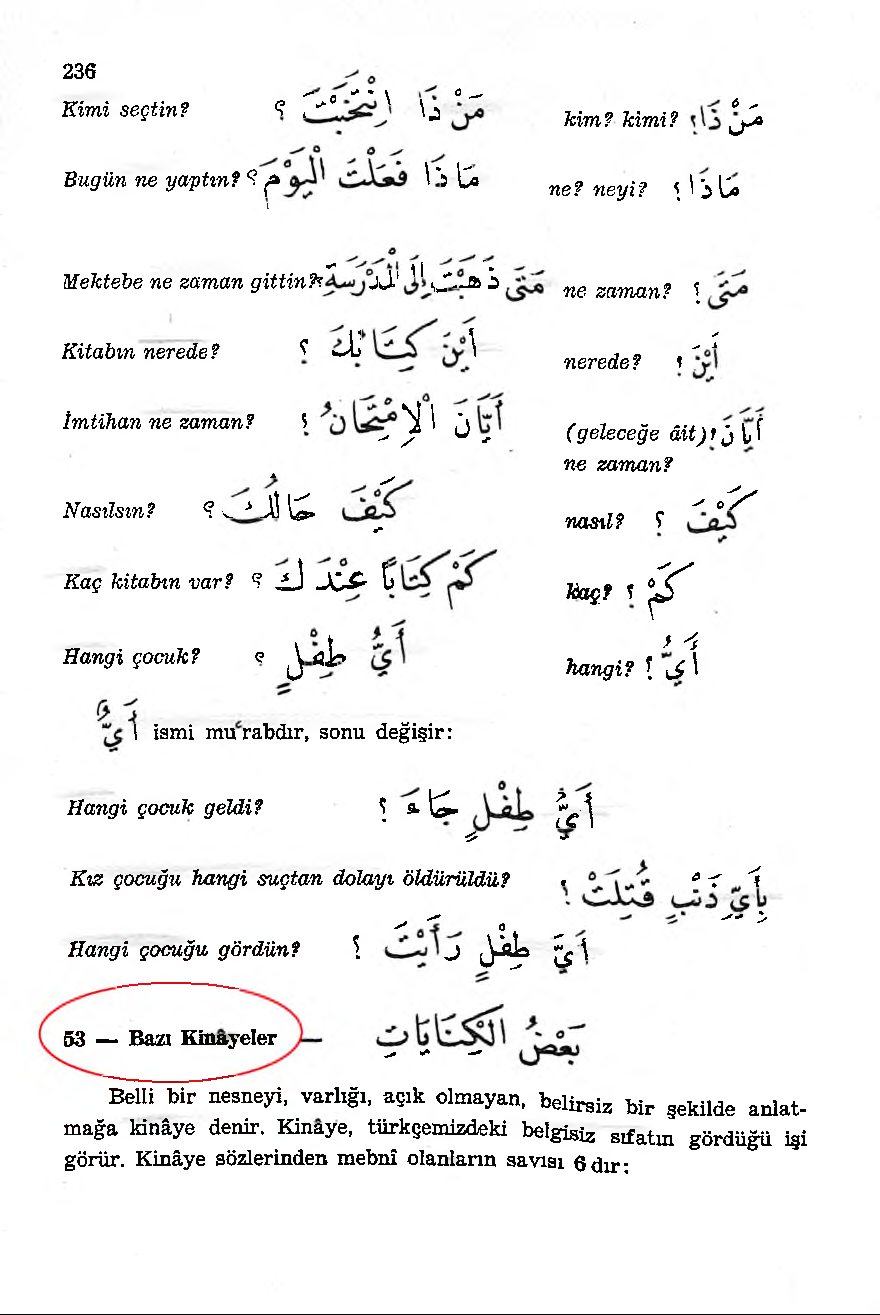 236
Kimi seçtin? مَنْ ذَا اِنْتَخَبْتَ ؟ kim? kimi? مَنْ ذَا؟
Bugün ne yaptın? مَاذَا فَعَلْتَ الْيَوْمَ؟ ne? neyi? مَاذَا ؟
Mektebe ne zaman gittin? مَتَى ذَهَبْتَ إِلَى الْمَدْرَسَةِ؟ ne zaman? مَتَى ؟
Kitabın nerede? أَيْنَ كِتَابُكَ ؟ nerede? أَيْنَ ؟
İmtihan ne zaman? أَيَّانَ الْاِمْتِحَانُ ؟ (geleceğe âit) أَيَّانَ؟
ne zaman?
Nasılsın? كَيْفَ حَالُكَ ؟ nasıl? كَيْفَ ؟
Kaç kitabın var? كَمْ كِتَابًا عِنْدَ لَكَ ؟ kaç? كَمْ ؟
Hangi çocuk? أَيُّ طِفْلٍ ؟ hangi? أَيُّ ؟
أَيٌّ ismi muʿrabdır, sonu değişir:
Hangi çocuk geldi? أَيُّ طِفْلٍ جَاءَ ؟
Kız çocuğu hangi suçtan dolayı öldürüldü? بِأَيِّ ذَنْبٍ قُتِلَتْ ؟
Hangi çocuğu gördün? أَيَّ طِفْلٍ رَأَيْتَ ؟
53 — Bazı Kinâyeler — بَعْضُ الْكِنَايَاتِ
Belli bir nesneyi, varlığı, açık olmayan, belirsiz bir şekilde anlat-
mağa kinâye denir. Kinâye, türkçemizdeki belgisiz sıfatın gördüğü işi
görür. Kinâye sözlerinden mebnî olanların sayısı 6 dır: